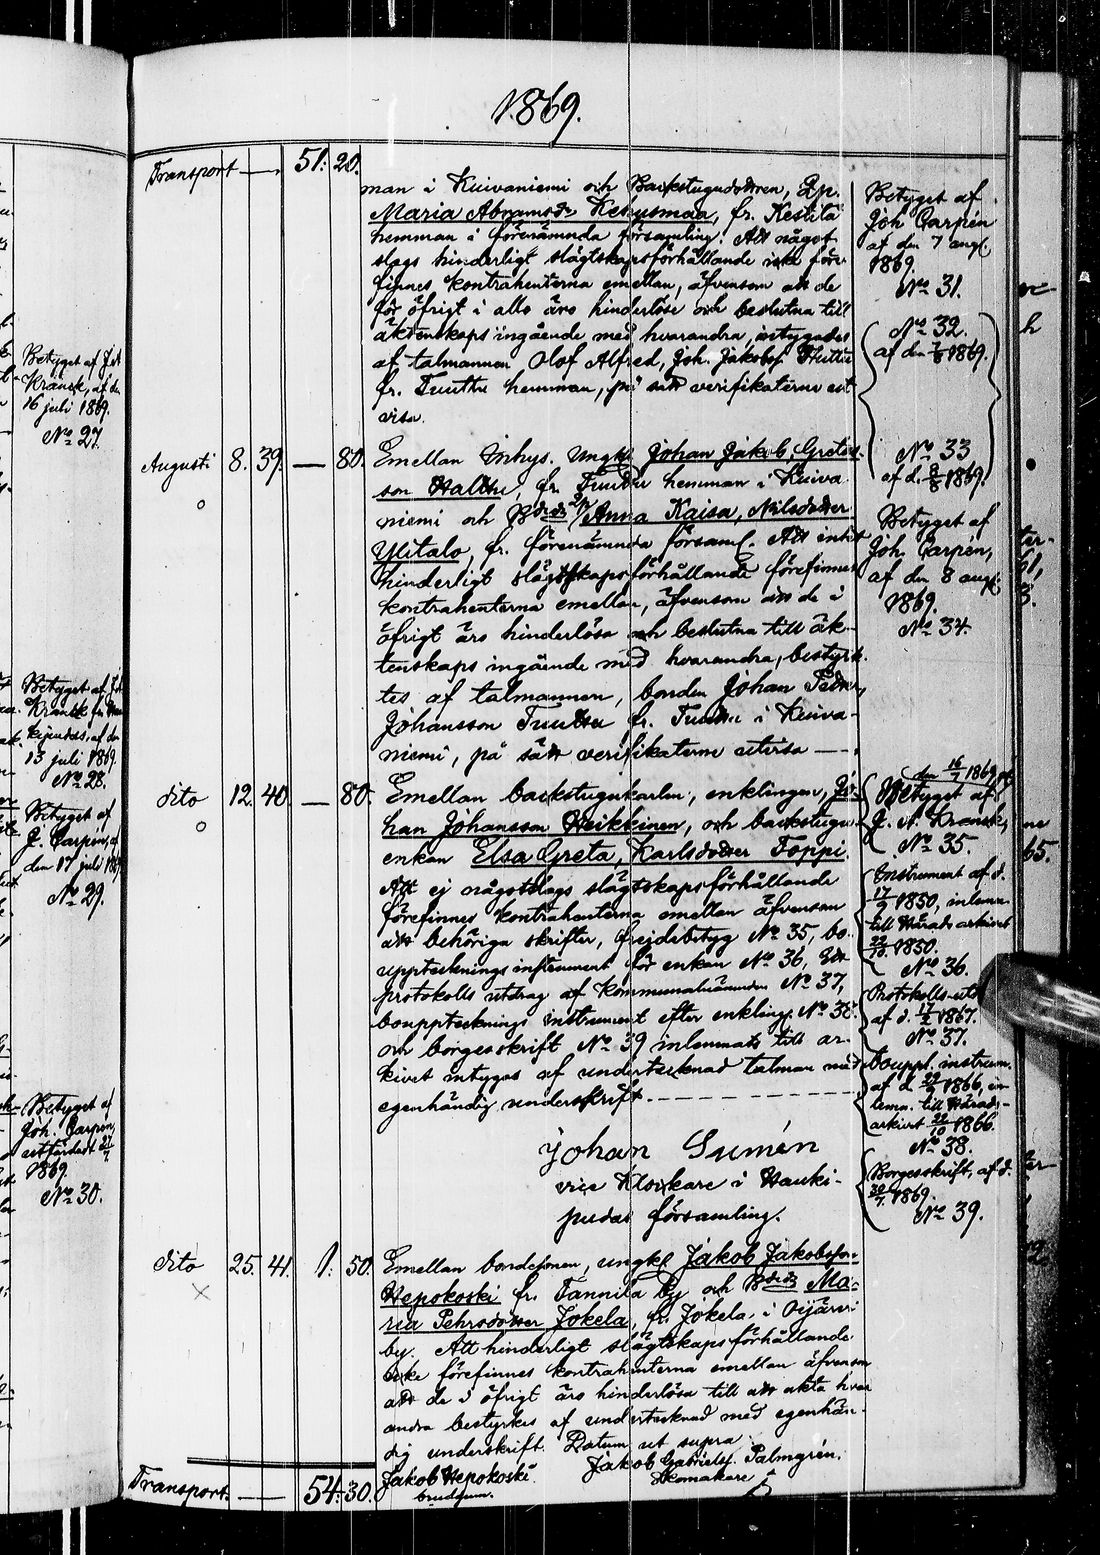 1869.
Transport — 51: 20.
man i Kuivaniemi och Backstugudottren, Pp.
Maria Abramsdr Keinusmaa, fr. Kestilä
hemman i förenämnda församling. Att något
slags hinderligt slägtskapsförhållande icke före-
finnes kontrahenterna emellan, äfvensom att de
för öfrigt i allo äro hinderlösa och beslutna till
äktenskaps ingående med hvarandra, intygades
af talmannen Olof Alfred, Joh. Jakobss. Huttu
fr. Tuuttu hemman, på sätt verifikaterne ut
visa.
Betyget af
Joh Carpén
af den 7 aug.
1869.
No 31.
No 32.
af den 7/8 1869.
No 33
af d. 8/8 1869.
Augusti 8. 39. — 80.
Emellan Inhys. Ungk. Johan Jakob, Gretas-
son Halttu, fr. Tuuttu hemman i Kuiva
niemi och Bdedr Anna Kaisa, Nilsdotter
Ylitalo, fr. förenämnda församl. Att intet
hinderligt slägtskapsförhållande förefinnes
kontrahenterna emellan, äfvensom att de i
öfrigt äro hinderlösa och beslutna till äk-
tenskaps ingående med hvarandra, bestyrk-
tes af talmannen, bonden Johan Petter
Johansson Tuuttu fr. Tuuttu i Kuiva-
niemi, på sätt verifikaterne utvisa —.
Betyget af
Joh. Carpén,
af den 8 aug.
1869.
No 34.
dito 12. 40. — 80.
Emellan backstugukarlen, enklingen, Jo-
han Johansson Heikkinen, och backstugu-
enkan Elsa Greta, Karlsdotter Toppi.
Att ej någotslags slägtskapsförhållande
förefinnes kontrahenterna emellan äfvensom
att behöriga skrifter, frejdebetyg No 35, bo-
uppteckningsinstrument för enkan No 36, Ett
protokolls utdrag af Kommunalnämnden No 37,
bouppteckningsinstrument efter enkling. No 38.
och borgesskrift No 39 inlemnats till ar-
kivet intygas af undertecknad talman med
egenhändig underskrift.
Johan Sumén
vice Klockare i Hauki-
pudas församling.
den 16/7 1869
Betyget af
J. A. Kranck,
No 35.
Instrument af d.
17/9 1850, inlemn.
till Härads arkivet
22/10 1850.
No 36.
Protokolls-utd
af d. 17/2 1867.
No 37.
Bouppt. instrum.
af d. 22/9 1866, in-
lemn. till Härads-
arkivet 22/10 1866.
No 38.
Borgesskrift, af d.
30/7 1869.
No 39.
dito 25. 41. 1: 50.
Emellan bondesonen, ungk. Jakob Jakobsson
Hepokoski fr. Tannila by och Bdedr Ma-
ria Pehrsdotter Jokela, fr. Jokela, i Oijärvi
by. Att hinderligt slägtskapsförhållande
icke förefinnes kontrahenterna emellan äfvensom
att de i öfrigt äro hinderlösa till att äkta hvar
andra bestyrkes af undertecknad med egenhän-
dig underskrift. Datum ut supra
Jakob Hepokoski
brudgum.
Jakob Gabrielss. Palmgrén.
Skomakare
Transport. — 54: 30.
Betyget af J. A.
Kranck, af den
16 juli 1869.
No 27.
Betyget af J. A.
Kranck fr. Hau
kipudas, af den
13 juli 1869.
No 28.
Betyget af
J. Carpén, af
den 17 juli 1869
No 29.
Betyget af
Joh. Carpén,
utfärdadt 27/7
1869.
No 30.